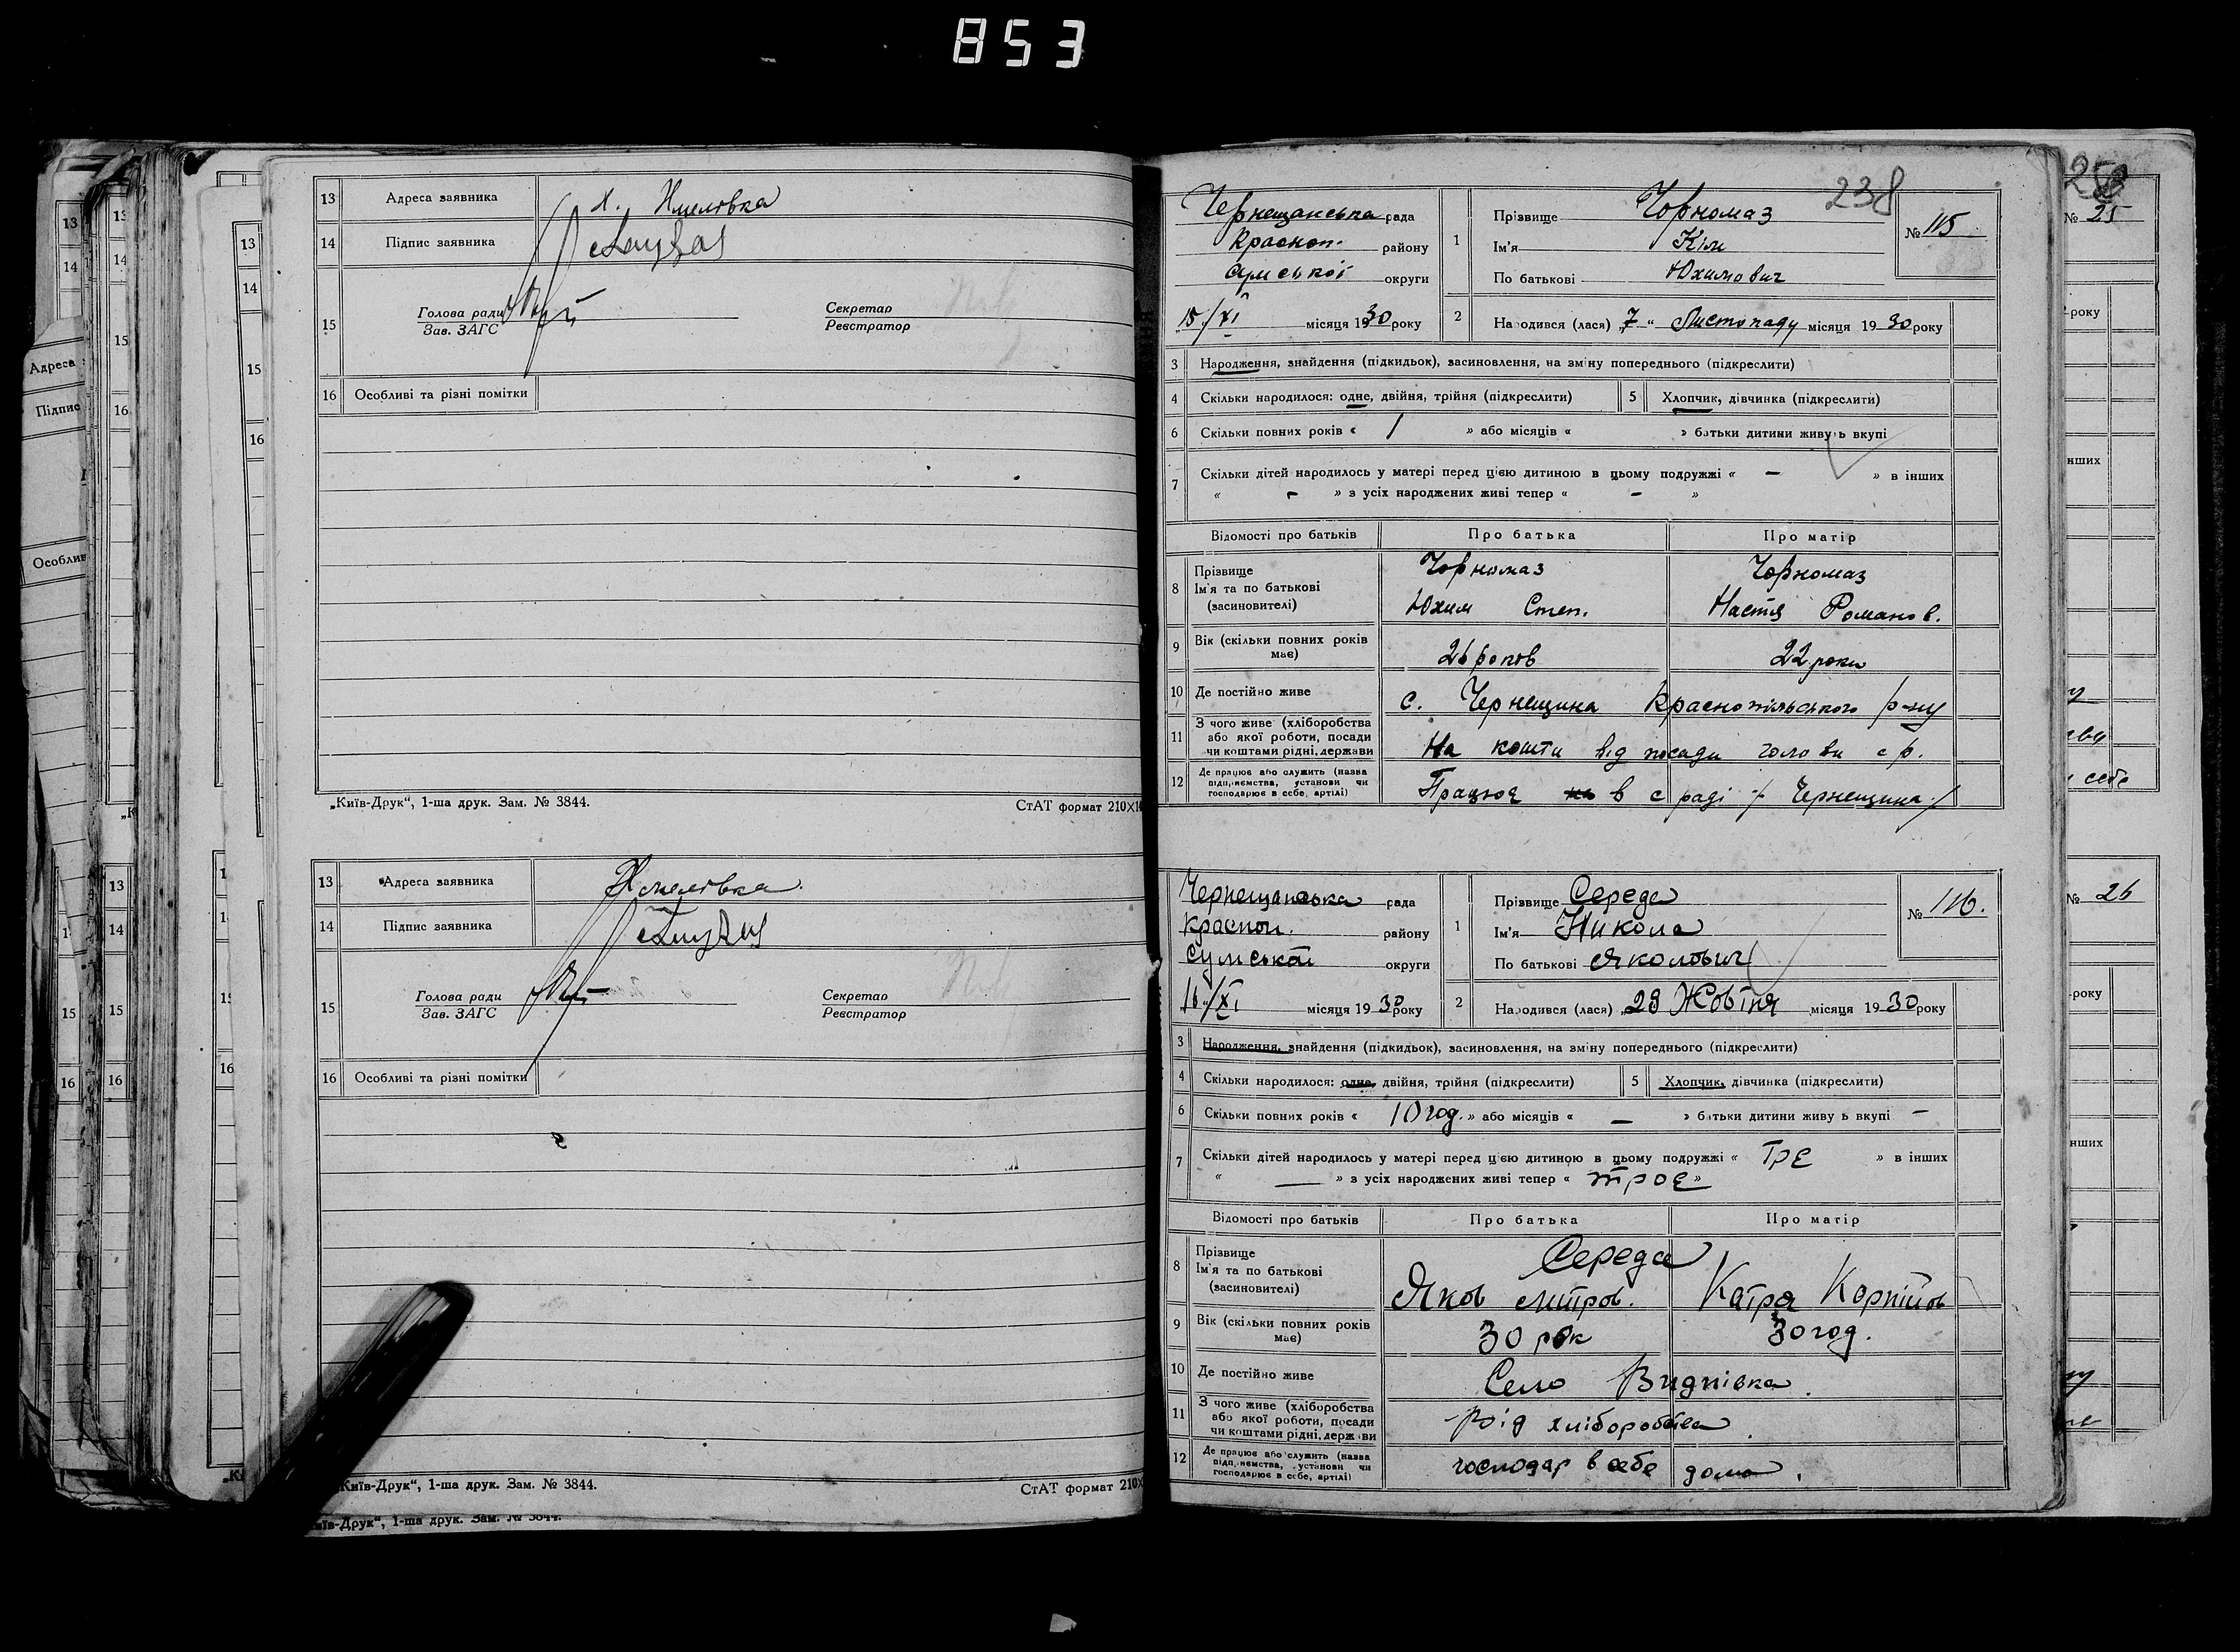 853
13 Адреса заявника х. Хмелівка
14 Підпис заявника
15 Голова ради
Зав. ЗАГС
Секретар
Реєстратор
16 Особливі та різні помітки
„Київ-Друк“, 1-ша друк. Зам. № 3844. СтАТ формат 210X1
13 Адреса заявника Хмелівка
14 Підпис заявника
15 Голова ради
Зав. ЗАГС
Секретар
Реєстратор
16 Особливі та різні помітки
Київ-Друк“, 1-ша друк. Зам. № 3844. СтАТ формат 210X
їв-Друк“, 1-ша друк. Зам. № 3844.
238
Чернещанська рада
Красноп. району
Сумської округи
15/XI місяця 1930 року
1 Прізвище Чорномаз
Ім'я Кім
По батькові Юхимович
№ 115
2 Народився (лася) „7“ Листопаду місяця 1930 року
3 Народження, знайдення (підкидьок), засиновлення, на зміну попереднього (підкреслити)
4 Скільки народилося: одне, двійня, трійня (підкреслити) 5 Хлопчик, дівчинка (підкреслити)
6 Скільки повних років « 1 » або місяців « » батьки дитини живуть вкупі
7 Скільки дітей народилось у матері перед цією дитиною в цьому подружжі « — » в інших
« - » з усіх народжених живі тепер « - »
Відомості про батьків Про батька Про матір
8 Прізвище Ім'я та по батькові (засиновителі) Чорномаз Чорномаз
Юхим Степ. Настя Романов.
9 Вік (скільки повних років має) 26 років 22 роки
10 Де постійно живе с. Чернещина Краснопільського р-ну
11 З чого живе (хліборобства або якої роботи, посади чи коштами рідні, держави На кошти від посади голови с/р.
12 Де працює або служить (назва підприємства, установи чи господарює в себе, артілі) Працює на в с раді /Чернещина/
Чернещанська рада
Красноп. району
Сумської округи
16/XI місяця 1930 року
1 Прізвище Середа
Ім'я Микола
По батькові Якович
№ 116.
2 Народився (лася) „28 Жовтня місяця 1930 року
3 Народження, знайдення (підкидьок), засиновлення, на зміну попереднього (підкреслити)
4 Скільки народилося: одне, двійня, трійня (підкреслити) 5 Хлопчик, дівчинка (підкреслити)
6 Скільки повних років « 10 год. » або місяців « — » батьки дитини живу ь вкупі —
7 Скільки дітей народилось у матері перед цією дитиною в цьому подружжі « Тре » в інших
« — » з усіх народжених живі тепер « троє »
Відомості про батьків Про батька Про матір
8 Прізвище Ім'я та по батькові (засиновителі) Середа
Яков Митров. Катря Карпійов
9 Вік (скільки повних років має) 30 рок 30 год.
10 Де постійно живе Село Видпівка.
11 З чого живе (хліборобства або якої роботи, посади чи коштами рідні, держави Від хліборобства.
12 Де працює або служить (назва підприємства, установи чи господарює в себе, артілі) господар в себе дома.
№ 25
року
нших
себе
№ 26
року
нших